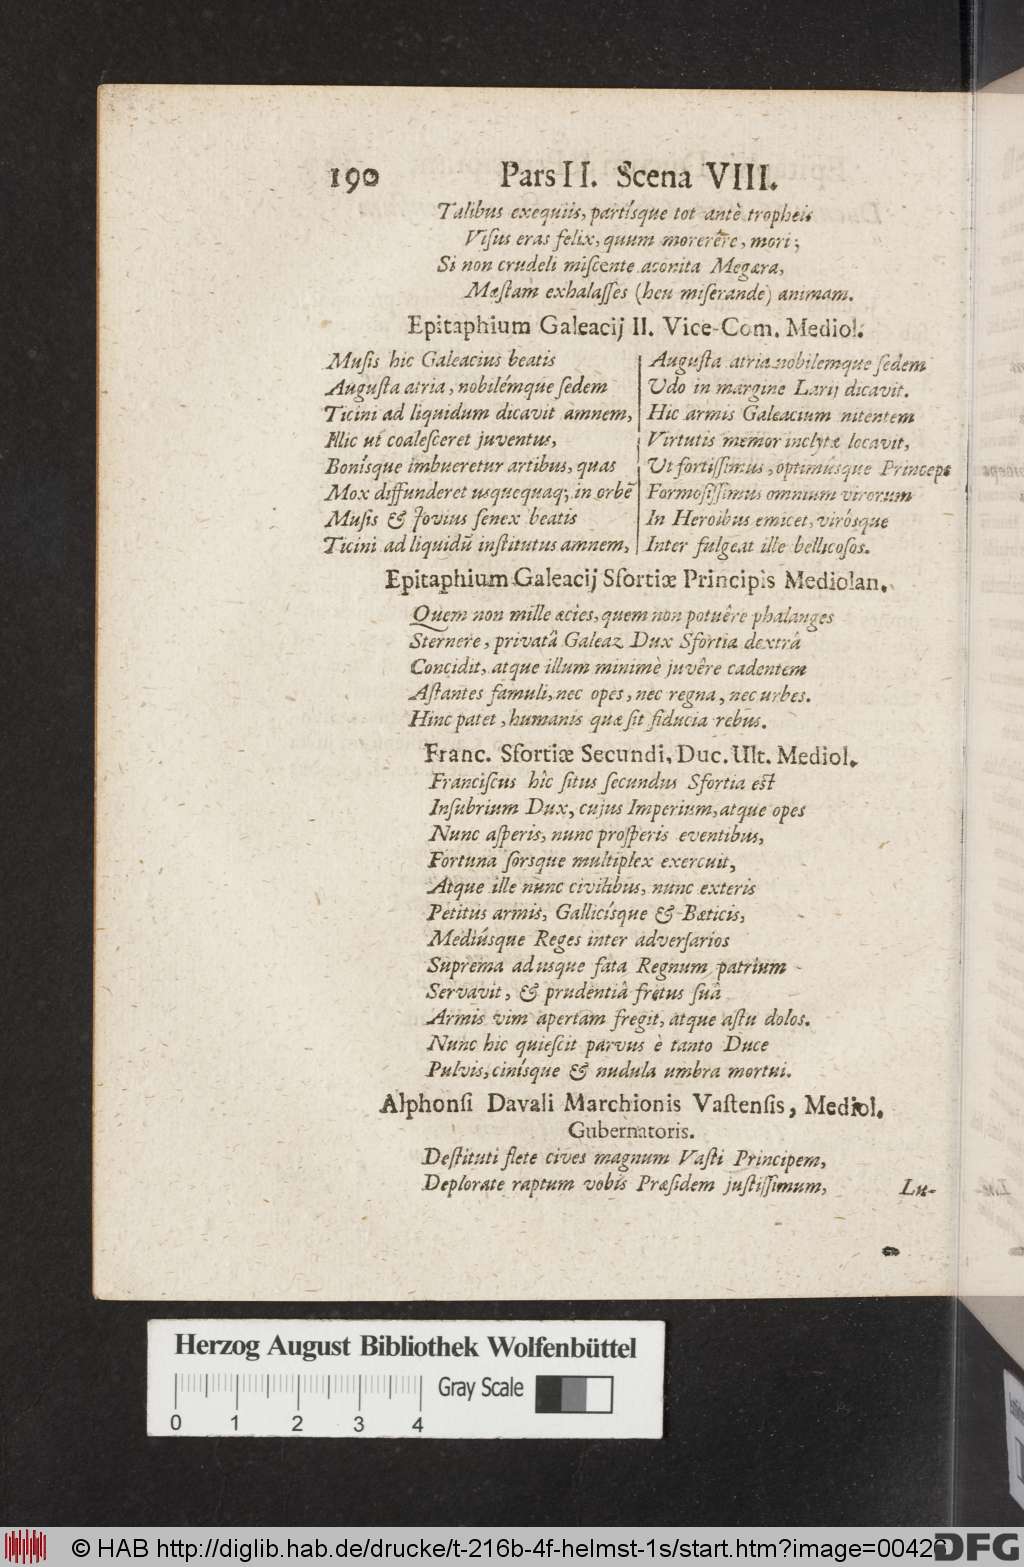 190 Pars II. Scena VIII.
Talibus exequiis, partísque tot antè tropheis
Visus eras felix, quum morerêre, mori;
Si non crudeli miscente aconita Megæra,
Mæstam exhalasses (heu miserande) animam.
Epitaphium Galeacij II. Vice-Com. Mediol.
Musis hic Galeacius beatis
Augusta atria, nobilémque sedem
Ticini ad liquidum dicavit amnem,
Illic ut coalesceret juventus,
Bonísque imbueretur artibus, quas
Mox diffunderet usquequaq; in orbē
Musis & Jovius senex beatis
Ticini ad liquidū institutus amnem,
Augusta atria nobilemque sedem
Udo in margine Larij dicavit.
Hic armis Galeacium nitentem
Virtutis memor inclytæ locavit,
Ut fortissimus, optimúsque Princeps
Formosissimus omnium virorum
In Heroibus emicet, virósque
Inter fulgeat ille bellicosos.
Epitaphium Galeacij Sfortiæ Principis Mediolan.
Quem non mille acies, quem non potuêre phalanges
Sternere, privatâ Galeaz Dux Sfortia dextrâ
Concidit, atque illum minimè juvêre cadentem
Astantes famuli, nec opes, nec regna, nec urbes.
Hinc patet, humanis quæ sit fiducia rebus.
Franc. Sfortiæ Secundi, Duc. Ult. Mediol.
Franciscus hîc situs secundus Sfortia est
Insubrium Dux, cujus Imperium, atque opes
Nunc asperis, nunc prosperis eventibus,
Fortuna sorsque multiplex exercuit,
Atque ille nunc civilibus, nunc exteris
Petitus armis, Gallicísque & Bæticis,
Mediúsque Reges inter adversarios
Suprema adusque fata Regnum patrium
Servavit, & prudentiâ fretus suâ
Armis vim apertam fregit, atque astu dolos.
Nunc hic quiescit parvus è tanto Duce
Pulvis, cinísque & nudula umbra mortui.
Alphonsi Davali Marchionis Vastensis, Mediol.
Gubernatoris.
Destituti flete cives magnum Vasti Principem,
Deplorate raptum vobis Præsidem justissimum,
Lu-
Herzog August Bibliothek Wolfenbüttel
Gray Scale
0 1 2 3 4
© HAB http://diglib.hab.de/drucke/t-216b-4f-helmst-1s/start.htm?image=00426
DFG